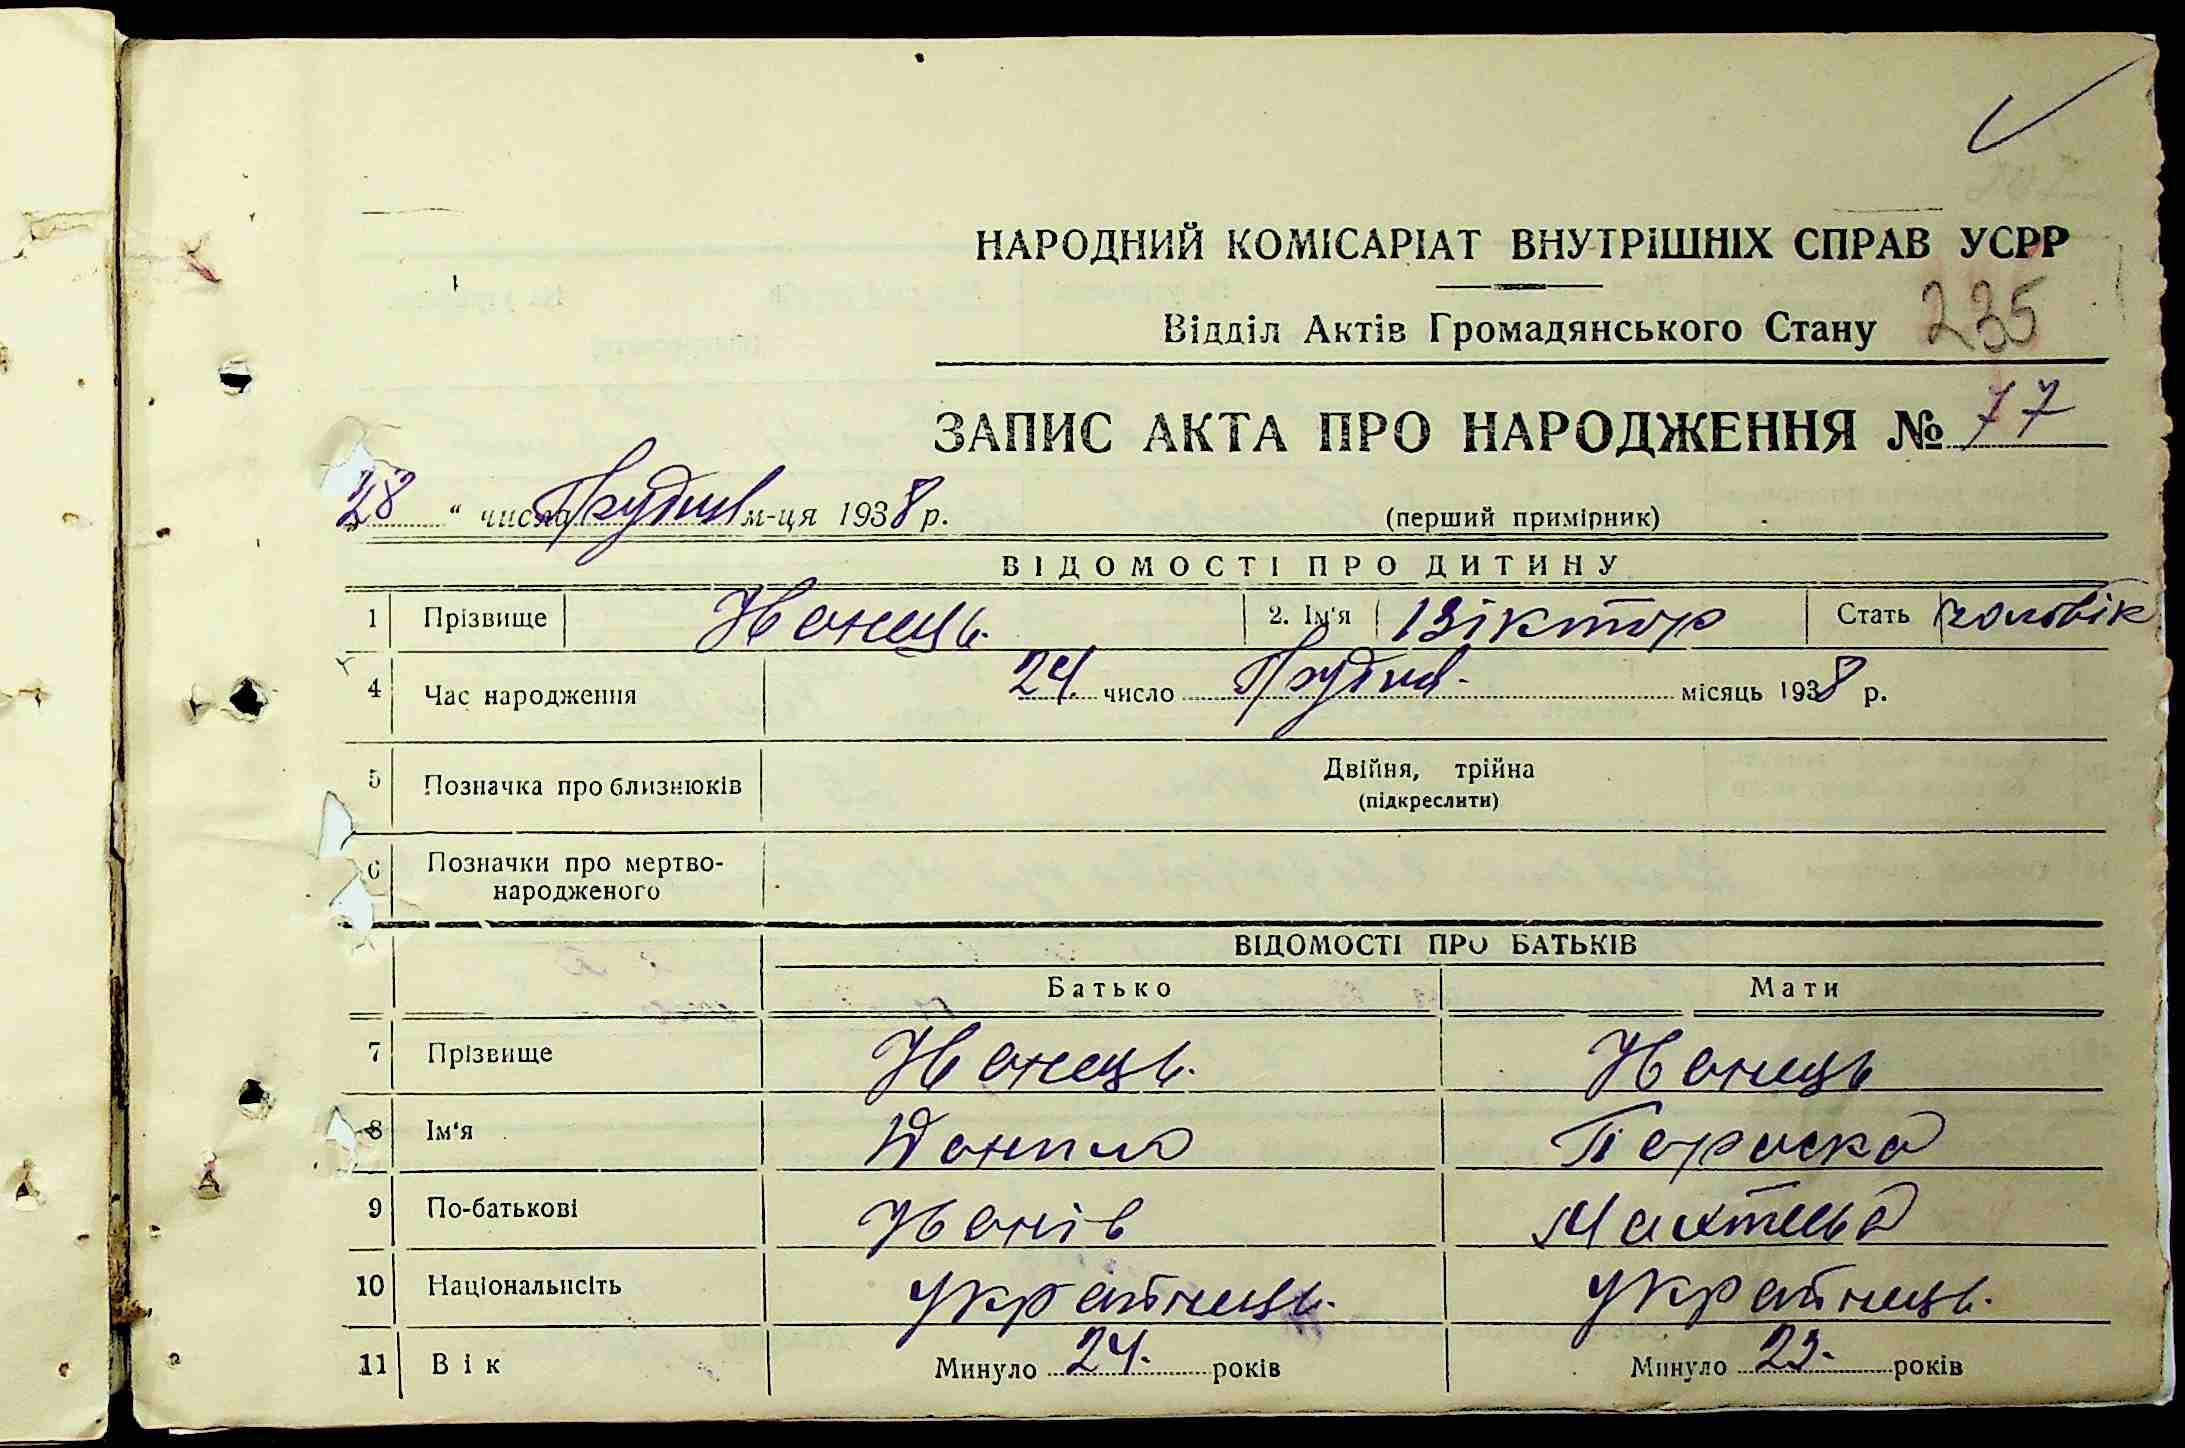 НАРОДНИЙ КОМІСАРІАТ ВНУТРІШНІХ СПРАВ УСРР
Відділ Актів Громадянського Стану 235
ЗАПИС АКТА ПРО НАРОДЖЕННЯ № 77
„28“ числа Грудня м-ця 1938 р. (перший примірник)
ВІДОМОСТІ ПРО ДИТИНУ
1 Прізвище 2. Ім'я Віктор Стать чоловік
4 Час народження 24 число Грудня місяць 1938 р.
5 Позначка про близнюків Двійня, трійна
(підкреслити)
6 Позначки про мертво-
народженого
ВІДОМОСТІ ПРО БАТЬКІВ
Батько Мати
7 Прізвище
8 Ім'я Данило Параска
9 По-батькові Іванів
10 Національність українець. українець.
11 Вік Минуло 24. років Минуло 23. років